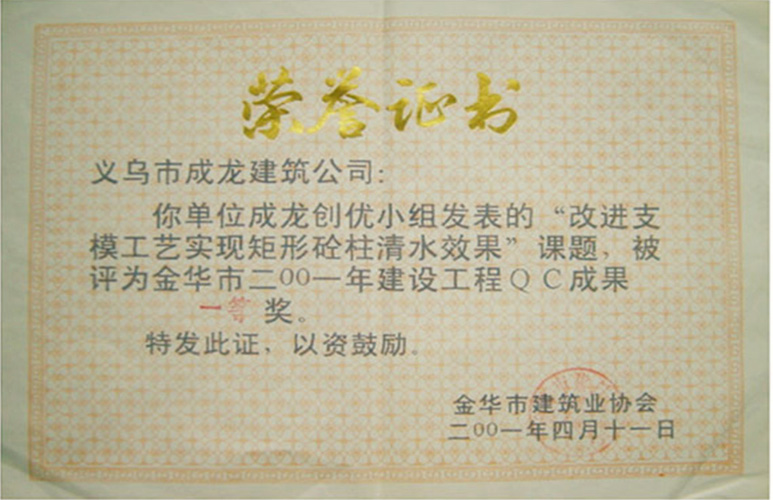 荣誉证书
义乌市成龙建筑公司:
你单位成龙创优小组发表的“改进支
模工艺实现矩形砼柱清水效果”课题, 被
评为金华市二00一年建设工程QC成果
一等奖。
特发此证, 以资鼓励。
金华市建筑业协会
二00一年四月十一日